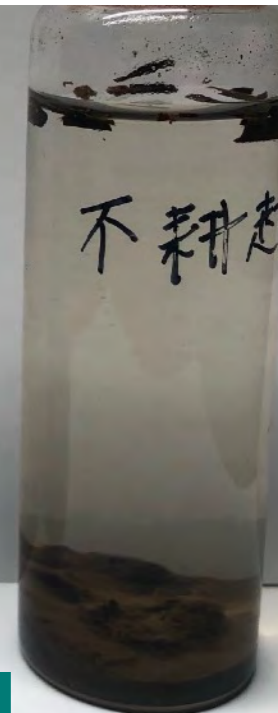 不耕起